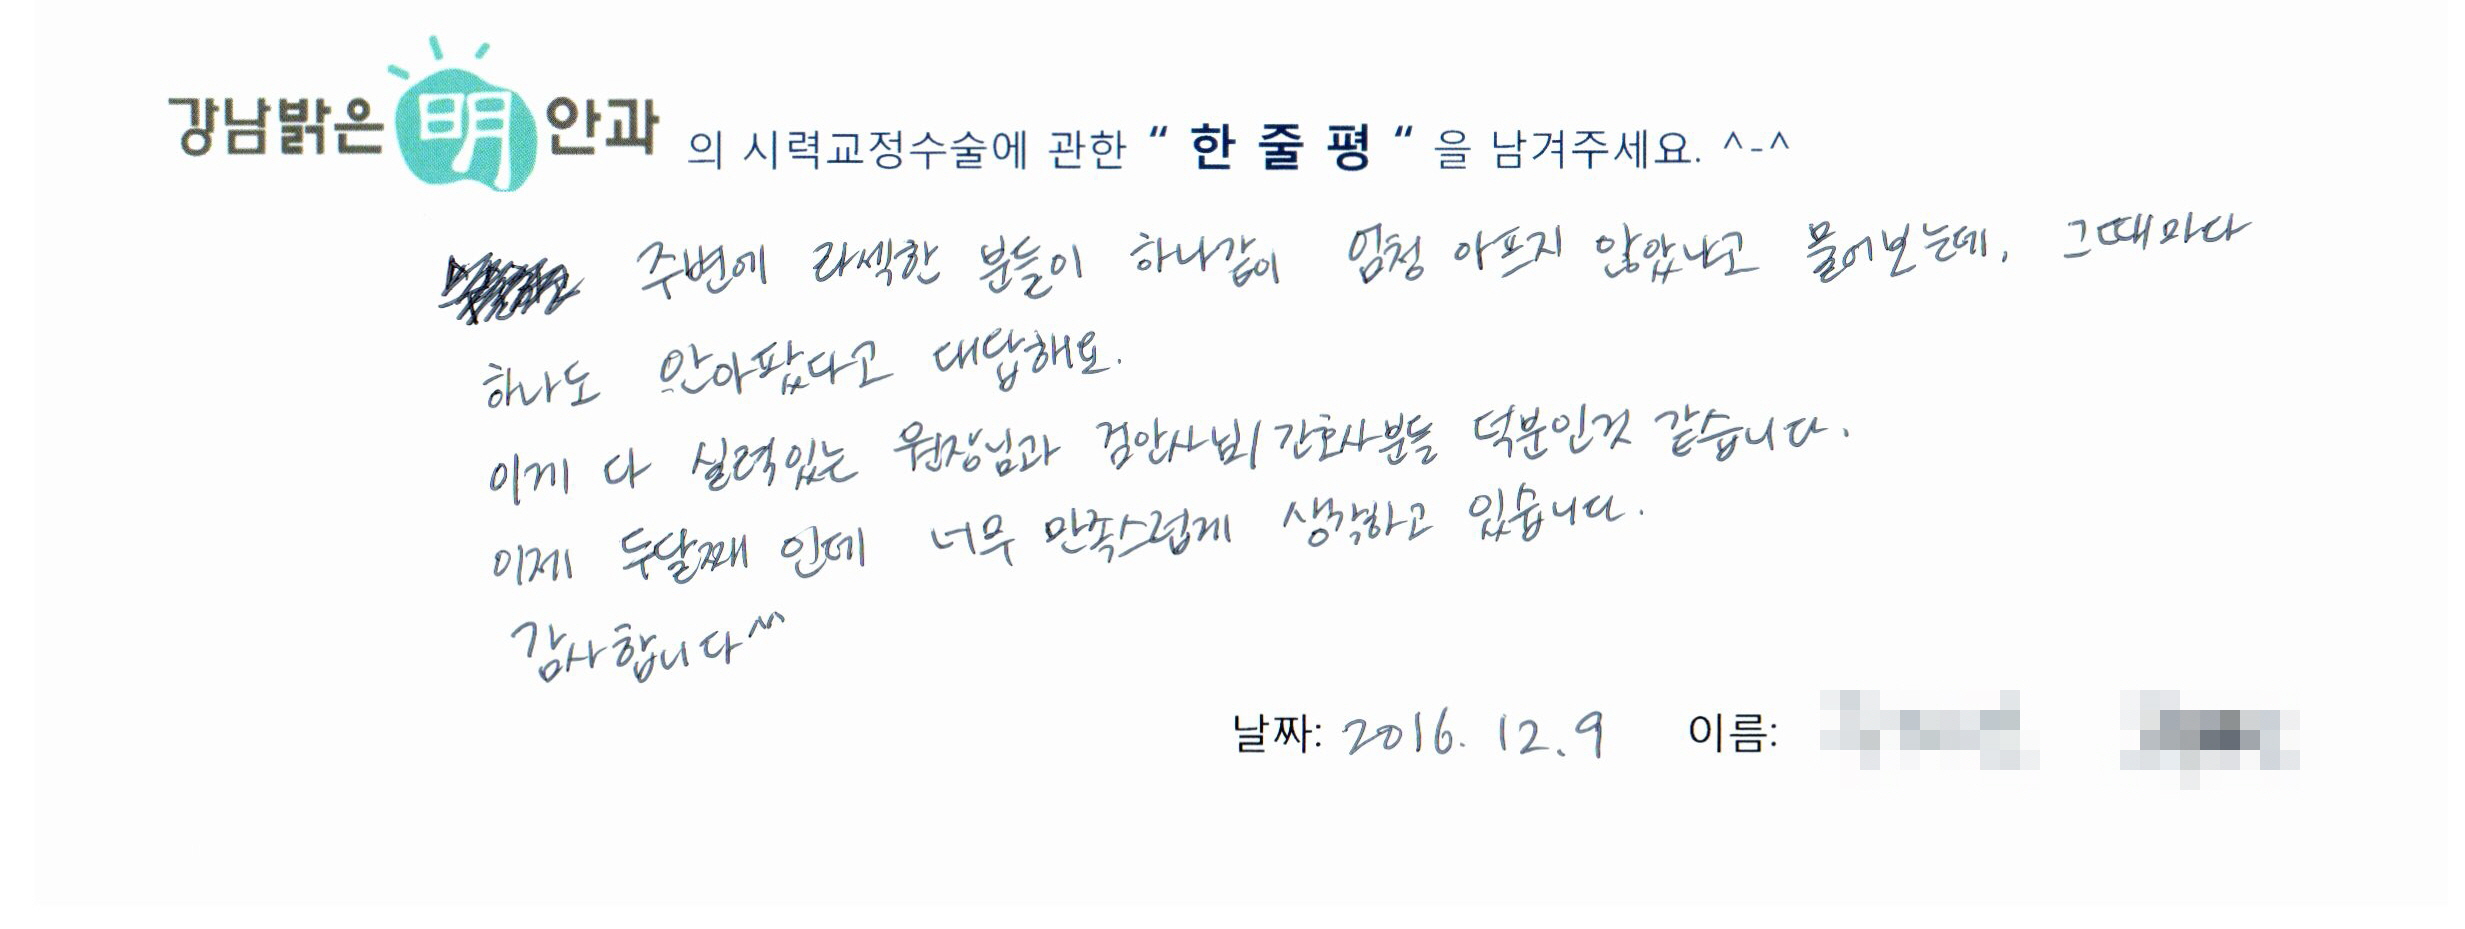 강남밝은 明 안과 의 시력교정수술에 관한 “ 한 줄 평 “ 을 남겨주세요. ^-^
주변에 라섹한 분들이 하나같이 엄청 아프지 않았냐고 물어보는데, 그때마다
하나도 안아팠다고 대답해요.
이게 다 실력있는 원장님과 검안사님/간호사분들 덕분인것 같습니다.
이제 두달째 인데 너무 만족스럽게 생각하고 있습니다.
감사합니다^^
날짜: 2016. 12. 9 이름: